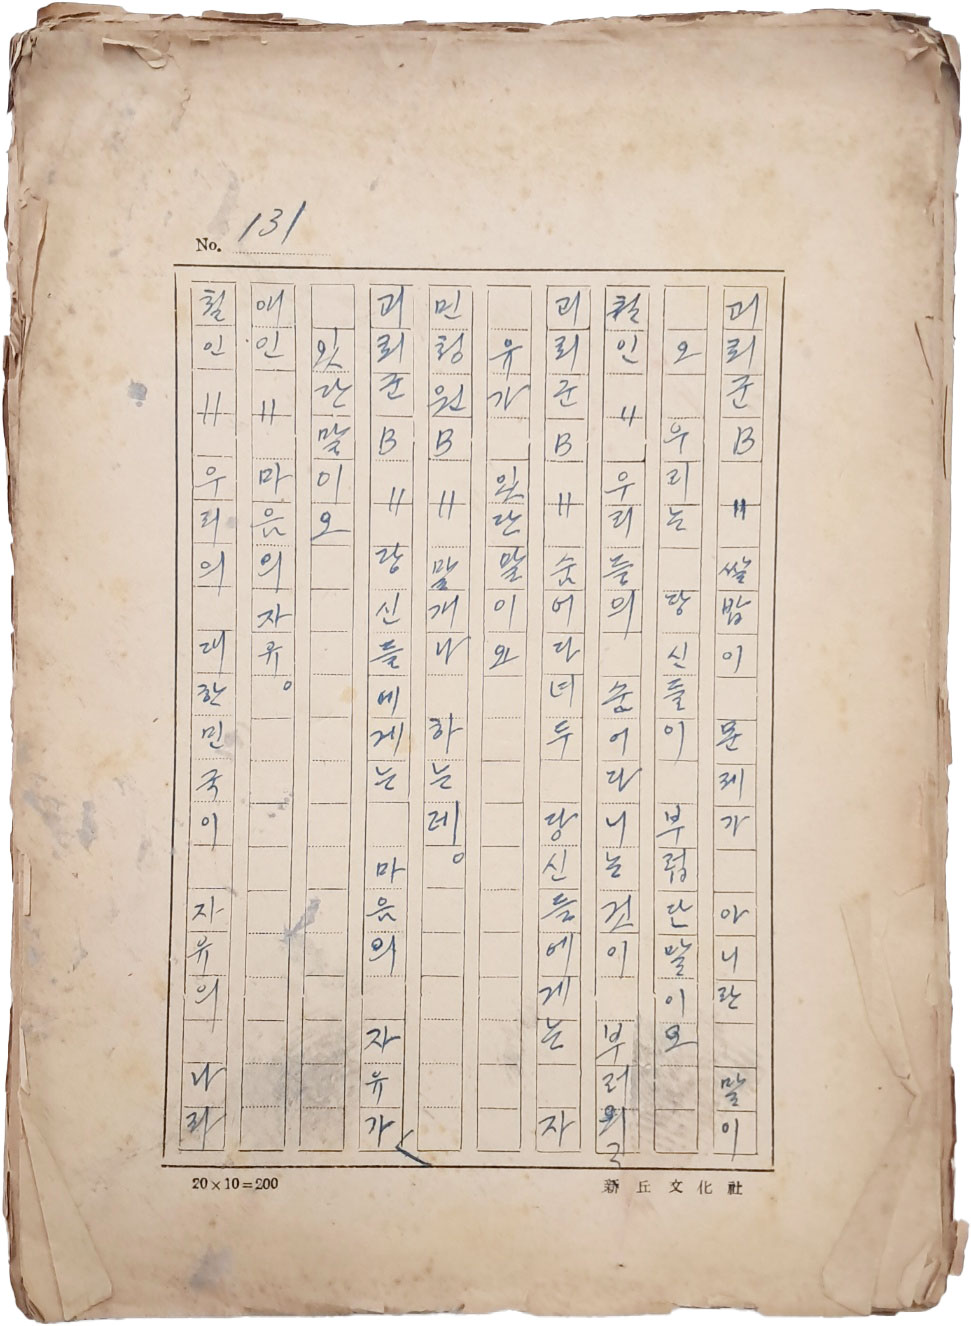 No. 131
괴뢰군B〃쌀밥이 문제가 아니란 말이
오 우리는 당신들이 부럽단말이오
철인〃우리들의 숨어다니는것이 부러워?
괴뢰군B〃숨어다녀두 당신들에게는 자
유가 있단말이와
민청원B〃말개나 하는데。
괴뢰군B〃당신들에게는 마음의 자유가
있단말이오
애인〃마음의자유。
철인〃우리의 대한민국이 자유의 나라
20×10=200
新丘文化社